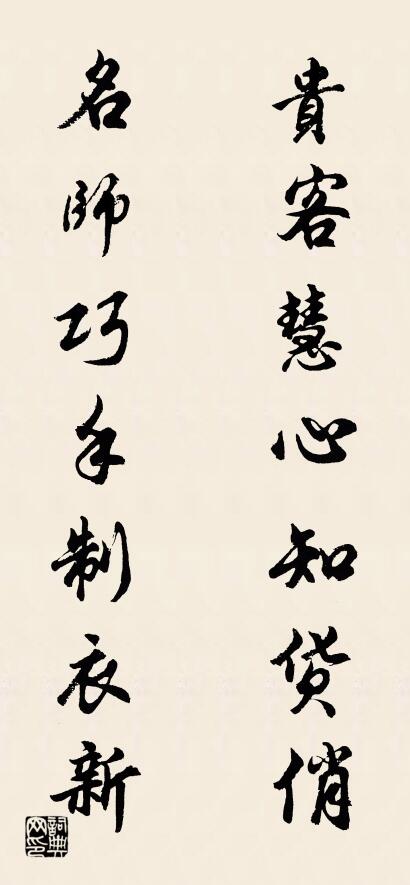 貴客慧心知货俏
名師巧手制衣新
詞典网印